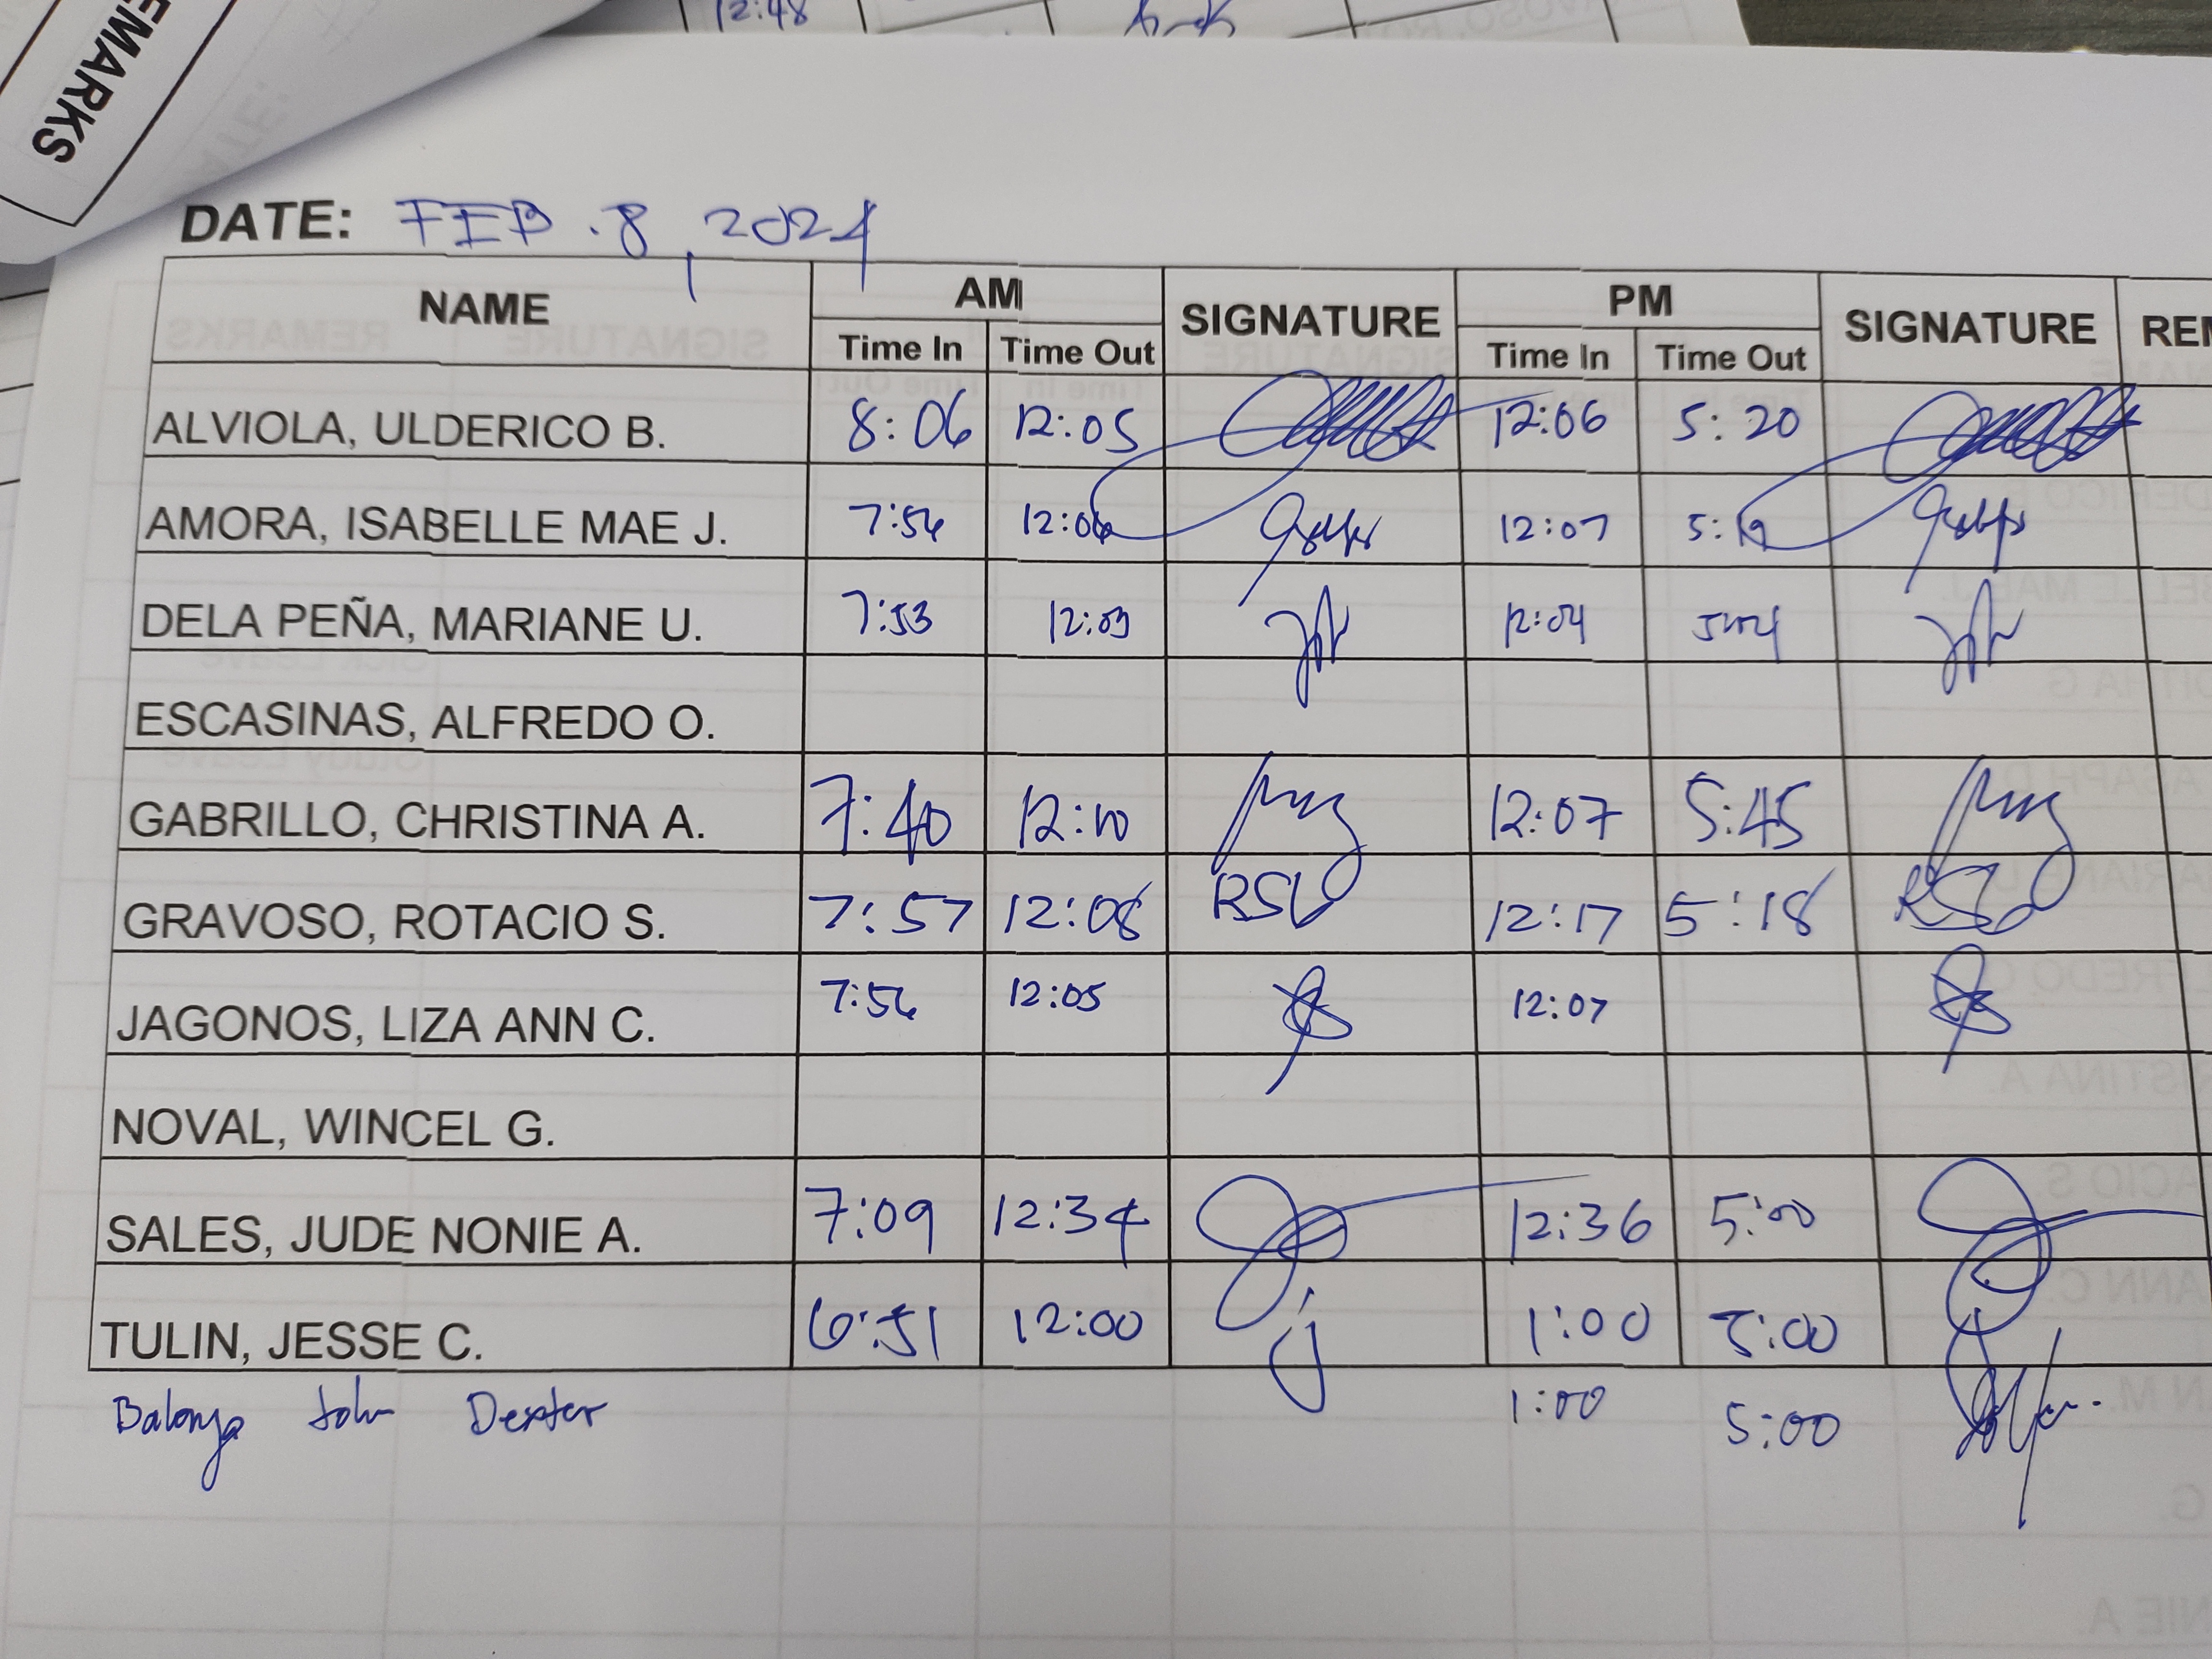 EMARKS
12:48
DATE: FEB. 8, 2024
NAME AM SIGNATURE PM SIGNATURE REM
Time In Time Out Time In Time Out
ALVIOLA, ULDERICO B. 8:06 12:05 12:06 5:20
AMORA, ISABELLE MAE J. 7:56 12:06 12:07 5:19
DELA PEÑA, MARIANE U. 7:53 12:03 12:04 5:04
ESCASINAS, ALFREDO O.
GABRILLO, CHRISTINA A. 7:40 12:10 12:07 5:45
GRAVOSO, ROTACIO S. 7:57 12:08 RSG 12:17 5:18 RSG
JAGONOS, LIZA ANN C. 7:56 12:05 12:07
NOVAL, WINCEL G.
SALES, JUDE NONIE A. 7:09 12:34 12:36 5:00
TULIN, JESSE C. 6:51 12:00 j 1:00 5:00
John Dexter 1:00 5:00